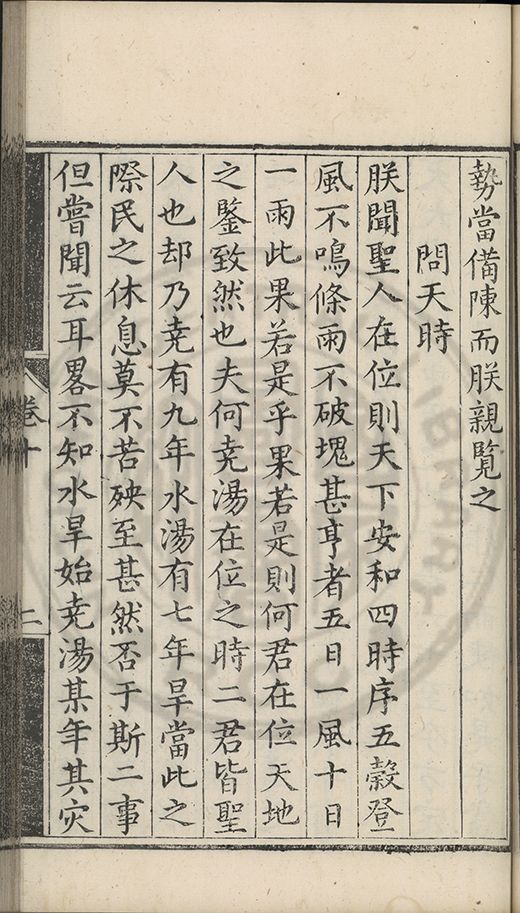 勢當備陳而朕親覽之
問天時
朕聞聖人在位則天下安和四時序五穀登
風不鳴條雨不破塊甚亨者五日一風十日
一雨此果若是乎果若是則何君在位天地
之鑒致然也夫何尭湯在位之時二君皆聖
人也却乃尭有九年水湯有七年旱當此之
際民之休息莫不苦殃至甚然否于斯二事
但嘗聞云耳畧不知水旱始尭湯某年其灾
卷十
二